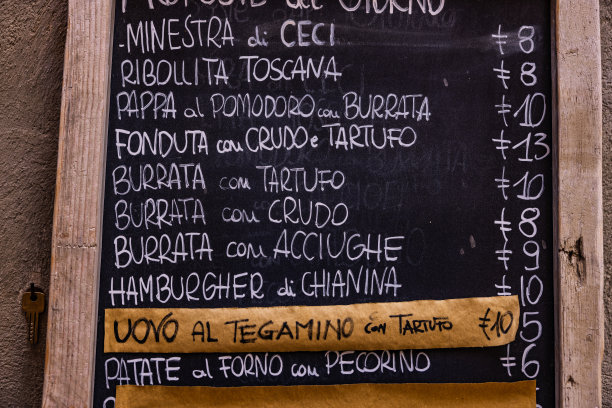 PROPOSTE del GIORNO
-MINESTRA di CECI €8
RIBOLLITA TOSCANA €8
PAPPA al POMODORO con BURRATA €10
FONDUTA con CRUDO e TARTUFO €13
BURRATA con TARTUFO €10
BURRATA con CRUDO €8
BURRATA con ACCIUGHE €9
HAMBURGHER di CHIANINA €10
UOVO AL TEGAMINO con TARTUFO €10 5
PATATE al FORNO con PECORINO €6